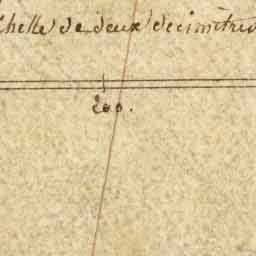 chelle de deux decimètres
200.